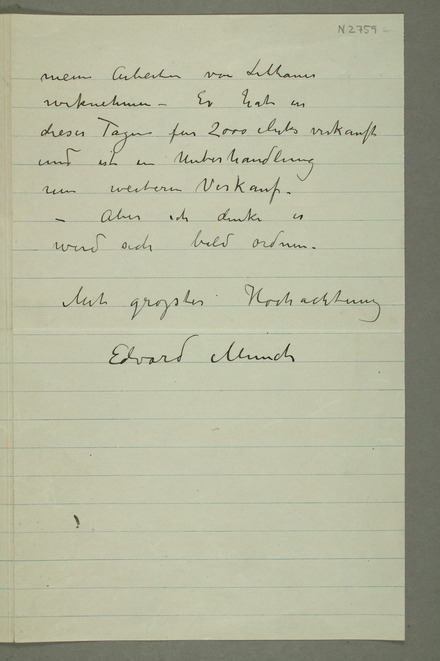 N 2759
meine Arbeiten von
– Er hat in
dieser Tagen für 2000 Mark verkauft
und ist in Unterhandlung
weiteren Verkauf.
– Aber ich denke es
wird sich bald ordnen.
Mit grosster Hochachtung
Edvard Munch